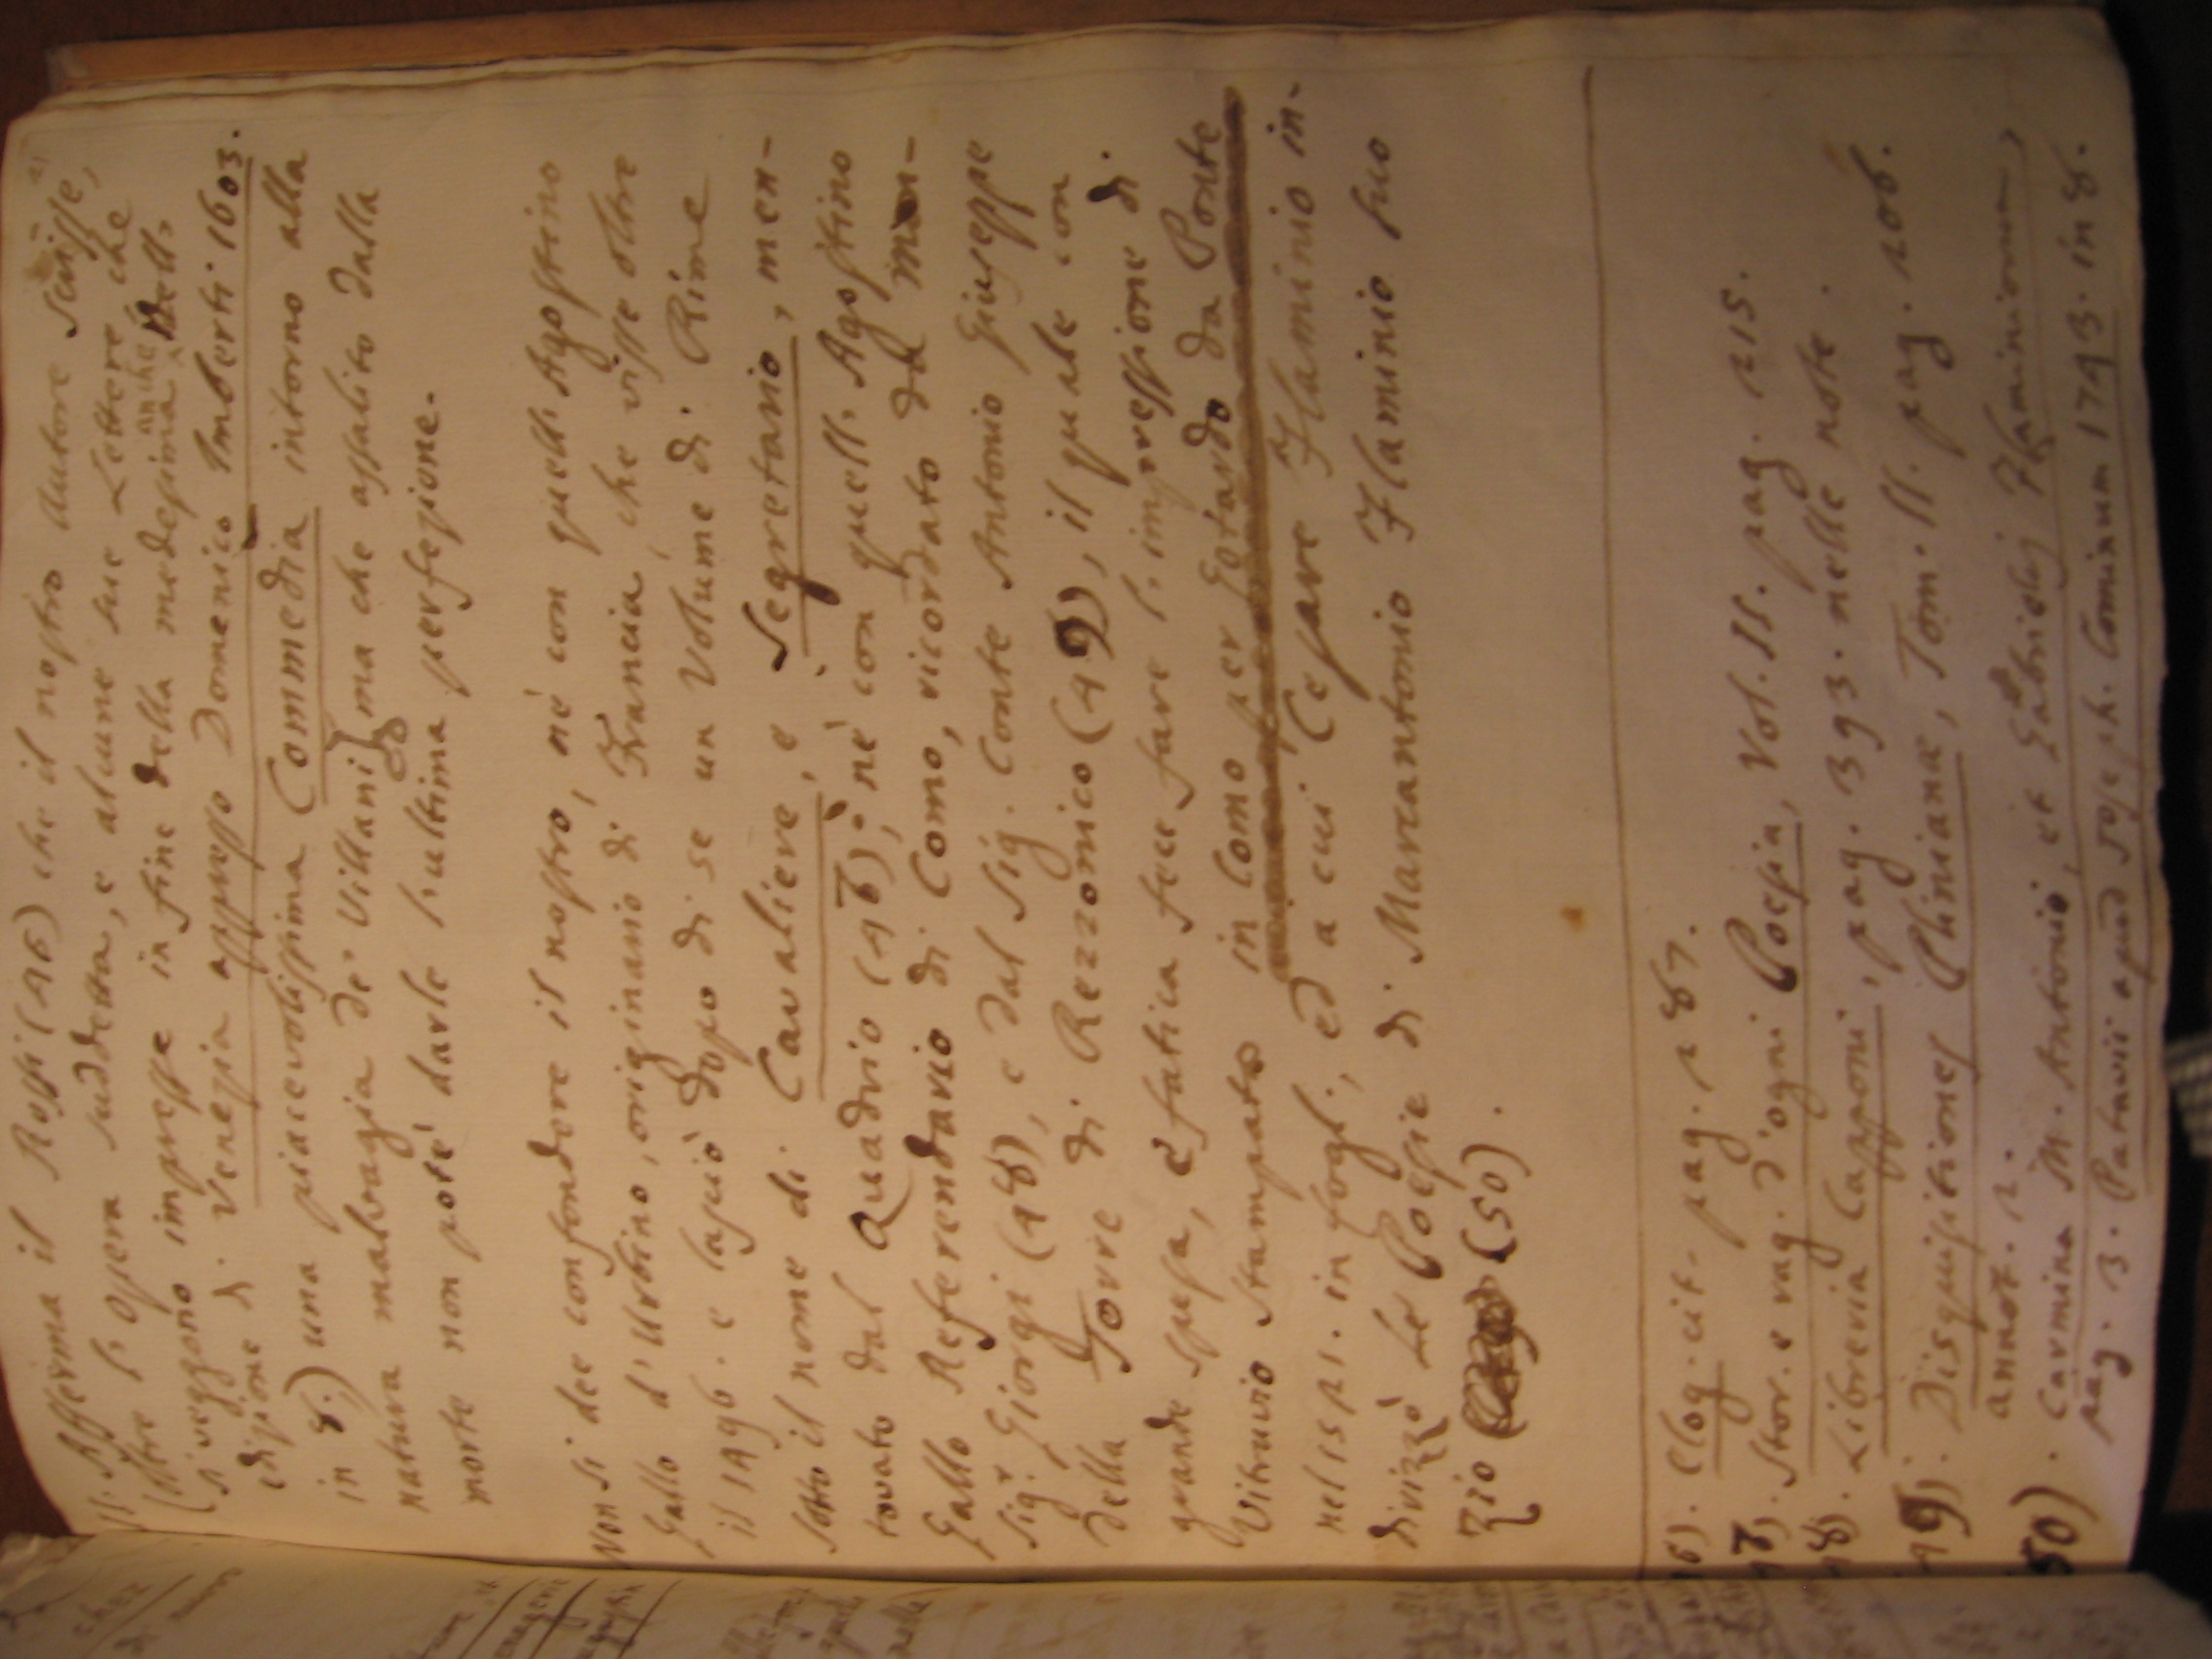 II. Afferma il Rossi (46) che il nostro Autore scrisse,
oltre l'Opera suddetta, e alcune sue Lettere che
(si veggono impresse in fine della medesima anche nell'
edizione di Venezia appresso Domenico Imberti 1603.
in 8.) una piacevolissima Commedia intorno alla
natura malvagia de' Villani, ma che assalito dalla
morte non potè darle l'ultima perfezione.
Non si dee confondere il nostro, nè con quell'Agostino
Gallo d'Urbino, originario di Francia, che visse oltre
il 1496. e lasciò dopo di se un Volume di Rime
sotto il nome di Cavaliere, e Segretario, men-
tovato dal Quadrio (47); nè con quell'Agostino
Gallo Referendario di Como, ricordato da Mon-
sig.r Giorgi (48), e dal Sig. Conte Antonio Giuseppe
della Torre di Rezzonico (49), il quale con
grande spesa, e fatica fece fare l'impressione di
Vitruvio stampato in Como per Gotardo da Ponte
nel 1521. in fogl.; ed a cui Cesare Flaminio in-
dirizzò le Poesie di Marcantonio Flaminio suo
Zio (50).
46). Elog. cit. pag. 287.
47). Stor. e rag. d'ogni Poesia, Vol. II. pag. 215.
48). Libreria Capponi, pag. 393. nelle note.
49). Disquisitiones Pliniane, Tom. II. pag. 206.
annot. 2.
50). Carmina M. Antonio, et Gabrielis Flaminiorum,
pag. 3. Patavii apud Joseph. Cominum 1743. in 8.